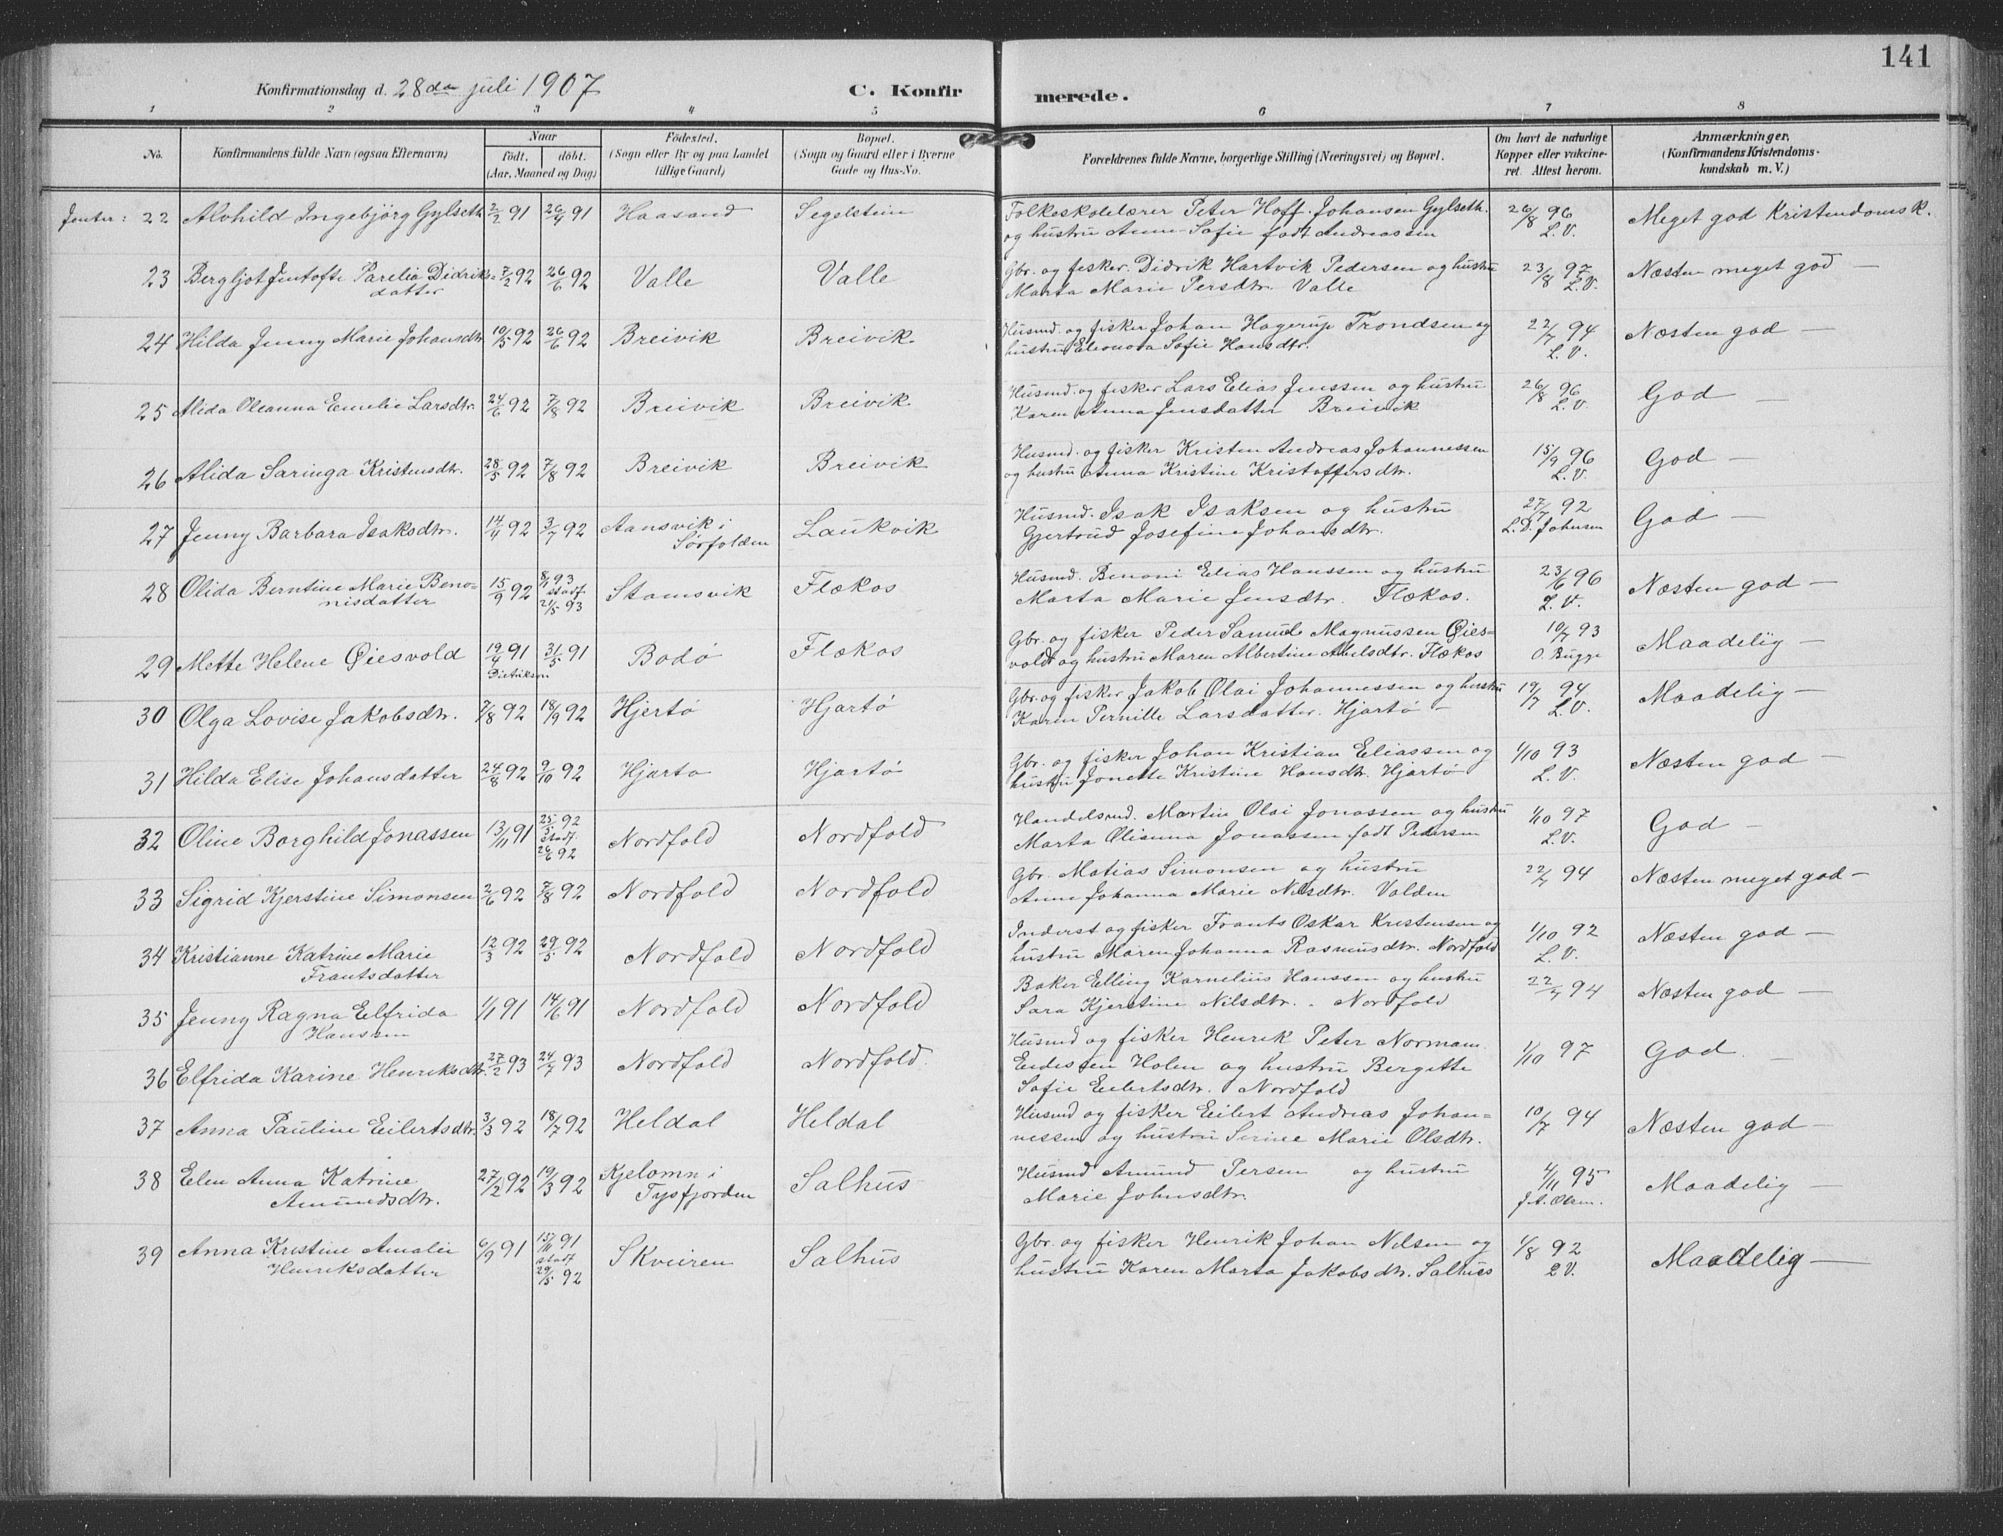 141
Konfirmationsdag d. 28de juli 1907
C. Konfirmerede.
1 2 3 4 5 6 7 8
No.
Konfirmandens fulde Navn (ogsaa Efternavn)
Naar
født. døbt.
(Aar, Maaned og Dag)
Fødested.
(Sogn eller By og paa Landet
tillige Gaard)
Bopæl.
(Sogn og Gaard eller i Byerne
Gade og Hus-No.
Forældrenes fulde Navne, borgerlige Stilling (Næringsvei) og Bopæl.
Om havt de naturlige
Kopper eller vakcine-
ret. Attest herom.
Anmærkninger.
(Konfirmandens Kristendoms-
kundskab m. V.)
Jenter: 22 Alvhild Ingebjørg Gylseth 2/2 91 26/4 91 Haasand Segelstein Folkeskolelærer Peter Hoff Johansen Gylseth 26/8 96 Meget god Kristendomsk.
og hustru Anne Sofie født Andreassen L.V.
23 Bergljot Jentofte Parelia Didriks= 7/2 92 26/6 92 Valle Valle Gbr. og fisker Didrik Hartvik Pedersen og hustru 23/8 97 Næsten meget god —
datter Marta Marie Persdtr. Valle L.V.
24 Hilda Jenny Marie Johansdtr 10/5 92 26/6 92 Breivik Breivik Husmd. og fisker Johan Hagerup Trondsen og 22/7 94 Næsten god —
hustru Eleonora Sofie Hansdtr. L.V.
25 Alida Oleanna Emelie Larsdtr. 24/6 92 7/8 92 Breivik Breivik Husmd. og fisker Lars Elias Jenssen og hustru 26/8 96 God —
Karen Anna Jensdatter Breivik L.V.
26 Alida Saringa Kristensdtr. 28/5 92 7/8 92 Breivik Breivik Husmd. og fisker Kristen Andreas Johannessen 15/9 96 God —
og hustru Anna Kristine Kristoffersdtr. L.V.
27 Jenny Barbara Isaksdtr. 14/4 92 3/7 92 Aansvik i Laukvik Husmd. Isak Isaksen og hustru 27/7 92 God —
Sørfolden Gjertrud Josefine Johansdtr. L.D. Johnsen
28 Olida Berntine Marie Beno= 15/9 92 8/1 93 Stamsvik Flækos Husmd. Benoni Elias Hanssen og hustru 23/6 96 Næsten god —
nisdatter stadf. 21/5 93 Marta Marie Jensdtr. Flækos. L.V.
29 Mette Helene Øiesvold 19/4 91 31/5 91 Bodø Flækos Gbr. og fisker Peder Samuel Magnussen Øies= 10/7 93 Maadelig —
vold og hustru Maren Albertine Abelsdtr. Flækos O. Bugge
30 Olga Lovise Jakobsdtr. 7/8 92 18/9 92 Hjertø Hjartø Gbr. og fisker Jakob Olai Johannessen og hustru 19/7 94 Maadelig —
Karen Pernille Larsdatter. Hjartø — L.V.
31 Hilda Elise Johansdatter 24/8 92 9/10 92 Hjarto Hjartø Gbr. og fisker Johan Kristian Eliassen og 1/10 93 Næsten god —
hustru Jonette Kristine Hansdtr. Hjartø L.V.
32 Oline Borghild Jonassen 13/11 91 25/3 92 Nordfold Nordfold Handelsmd. Martin Olai Jonassen og hustru 1/10 97 God —
stadf. 26/6 92 Marta Olisanna Jonassen født Pedersen L.V.
33 Sigrid Kjerstine Simonsen 2/6 92 7/8 92 Nordfold Nordfold Gbr. Matias Simonsen og hustru 22/7 94 Næsten meget god —
Anne Johanna Marie Nilsdtr. Valden
34 Kristianne Katrine Marie 12/3 92 29/5 92 Nordfold Nordfold Inderst og fisker Frants Oskar Kristensen og 1/10 92 Næsten god —
Frantsdatter hustru Maren Johanna Rasmusdtr. Nordfold L.V.
35 Jenny Ragna Elfrida 1/1 91 14/6 91 Nordfold Nordfold Baker Elling Kornelius Hanssen og hustru 22/7 94 Næsten god —
Hanssen Sara Kjerstine Nilsdtr. Nordfold
36 Elfrida Karine Henriksdtr. 27/2 93 24/7 93 Nordfold Nordfold Husmd og fisker Henrik Peter Normann 1/10 97 God —
Endesen Holen og hustru Bergitte
Sofie Eilertsdtr. Nordfold
37 Anna Pauline Eilertsdtr. 3/3 92 18/7 92 Heldal Heldal Husmd og fisker Eilert Andreas Johan= 10/7 94 Næsten god —
nessen og hustru Serine Marie Olsdtr.
38 Elen Anna Katrine 27/2 92 19/3 92 Kjelomn i Salhus Husmd Amund Persen og hustru 4/11 95 Maadelig —
Amundsdtr. Tysfjorden Marie Johnsdtr.
39 Anna Kristine Amalie 6/9 91 15/11 91 Skveiren Salhus Gbr. og fisker Henrik Johan Nilsen og 1/8 92 Maadelig —
Henriksdatter stadf 29/5 92 hustru Karen Marta Jakobsdtr. Salhus L.V.